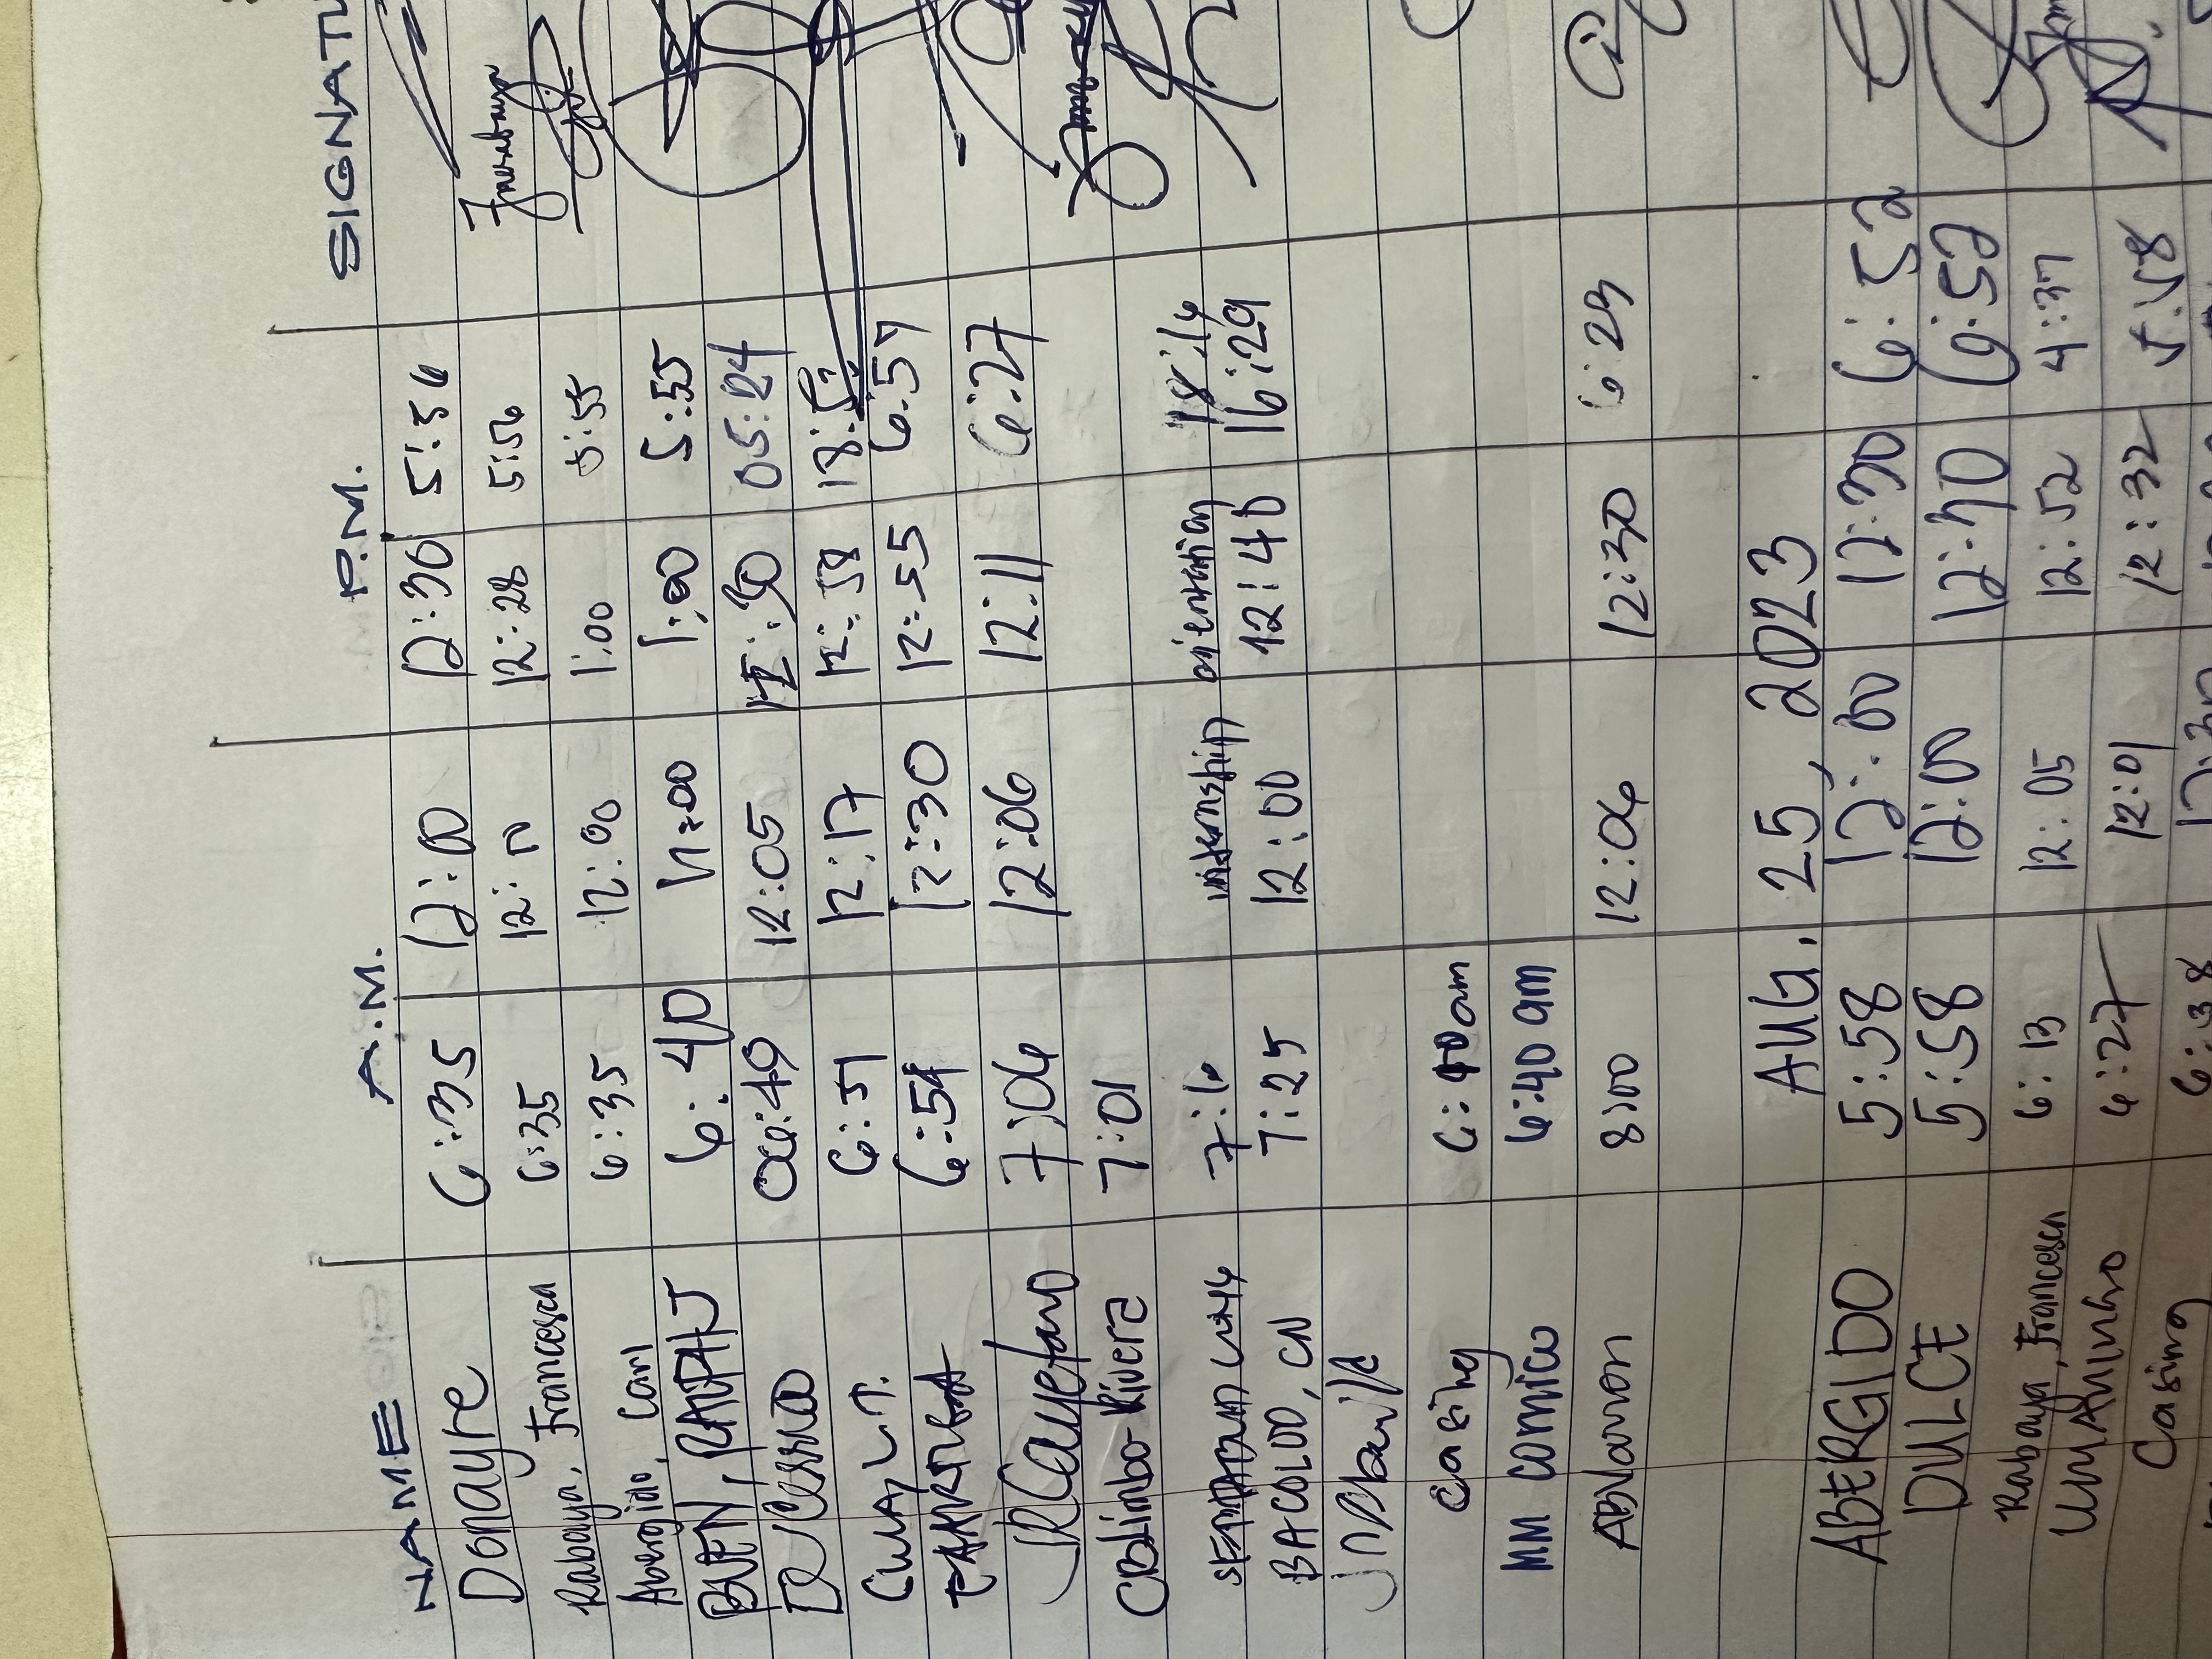 NAME A.M. P.M. SIGNATU
Donayre 6:35 12:00 12:30 5:56
Rabaya, Francesca 6:35 12:11 12:28 5:56
Abergido, Carl 6:35 12:00 1:00 5:55
BUEN, RALPH J 6:40 12:00 1:00 5:55
06:49 12:05 05:24
6:51 12:17 12:58
6:54 12:30 12:55 6:57
JRCayetano 7:06 12:06 12:11 6:27
CBlimbo-Rivera 7:01
7:16 internship orientation 18:16
BACOLOD, CN 7:25 12:00 12:40 16:29
Casing 6:40am
MM COMICO 6:40 am
ABlavron 8:00 12:06 12:30 6:23
AUG. 25, 2023
ABERGIDO 5:58 12:00 12:30 6:52
DULCE 5:58 12:00 12:40 6:52
Rabaya, Francesca 6:13 12:05 12:52 4:37
6:27 12:01 12:32
Casing 6:38 12:30